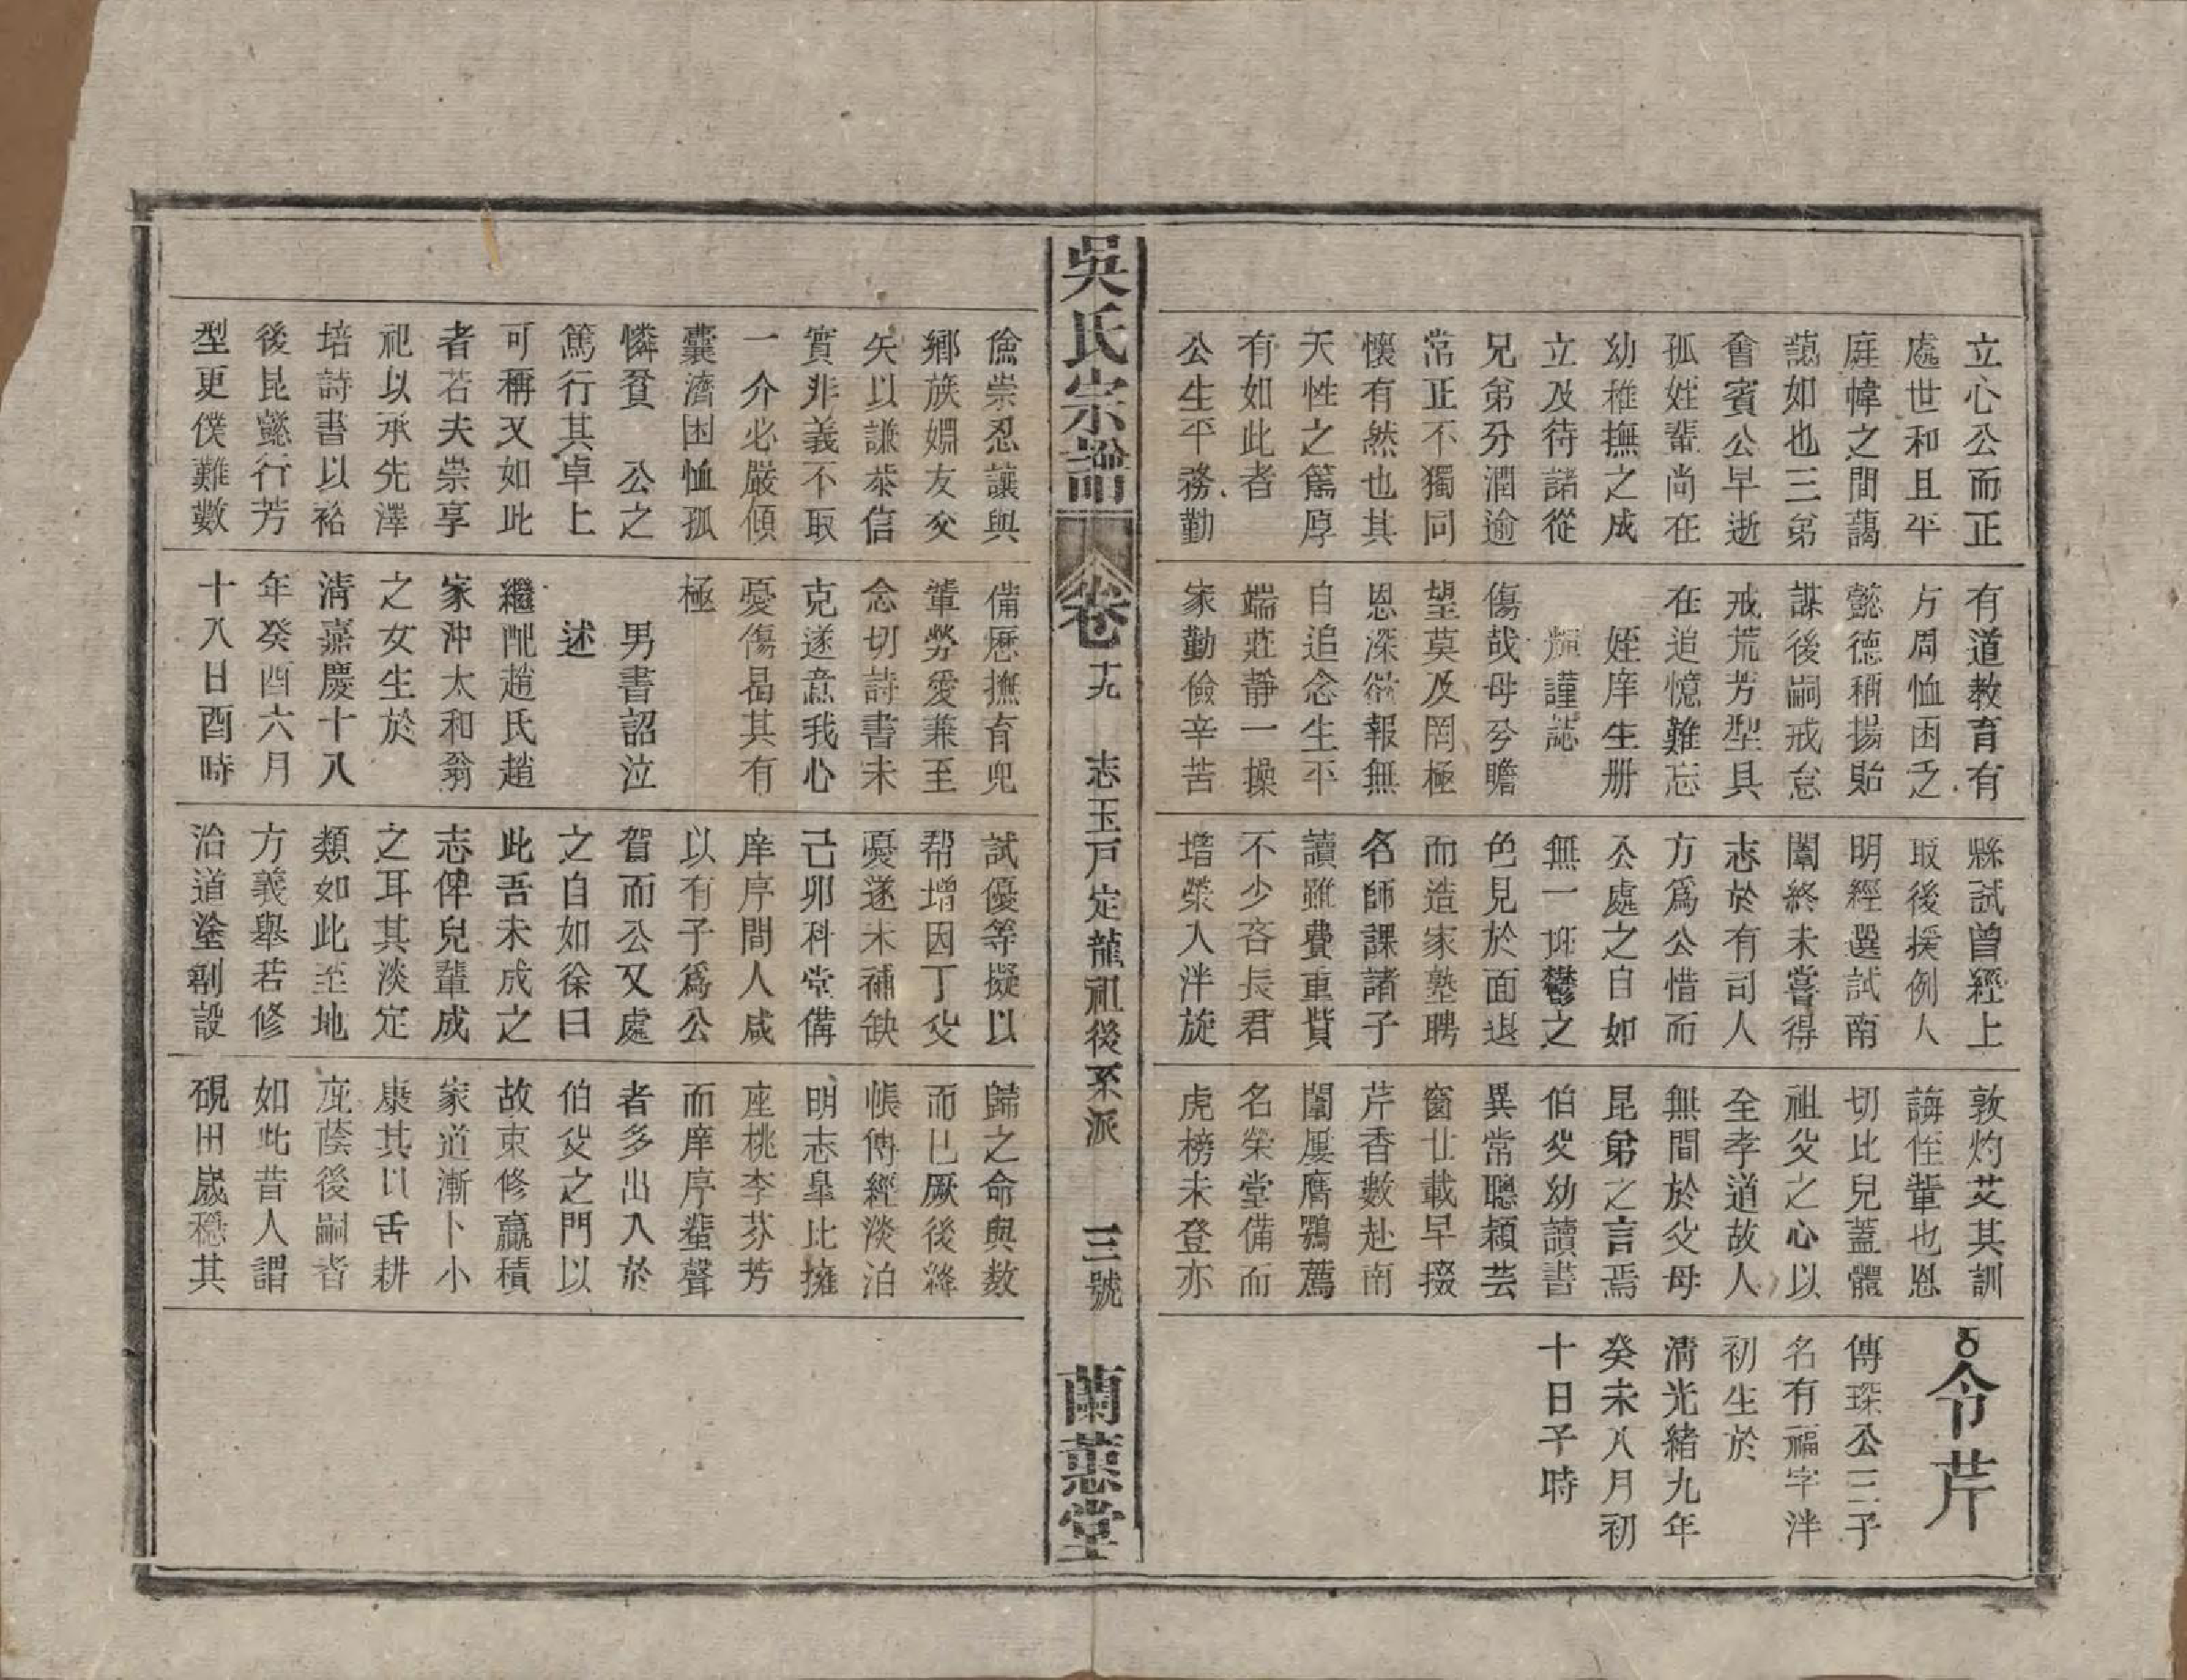 吳氏宗譜 卷十九 志玉戸定龍祖後系派 三號 蘭蕙堂
立心公而正
處世和且平
庭幃之間藹
藹如也三弟
會賓公早逝
孤姪輩尚在
幼稚撫之成
立及待諸從
兄弟分潤逾
常正不獨同
懷有然也其
天性之篤厚
有如此者
公生平務勤
儉崇忍讓與
鄉族婣友交
矢以謙恭信
實非義不取
一介必嚴傾
囊濟困恤孤
憐貧 公之
篤行其卓上
可稱又如此
者若夫崇享
祀以承先澤
培詩書以裕
後昆懿行芳
型更僕難數
有道教育有
方周恤困乏
懿德稱揚貽
謀後嗣戒怠
戒荒芳型具
在追憶難忘
姪庠生册
謹誌
傷哉母兮瞻
望莫及罔極
恩深欲報無
自追念生平
端莊靜一操
家勤儉辛苦
備歷撫育兒
輩勞愛兼至
念切詩書未
克遂意我心
憂傷曷其有
極
男書詔泣
述
繼配趙氏趙
家沖太和翁
之女生於
清嘉慶十八
年癸酉六月
十八日酉時
縣試曾經上
取後援例人
明經選試南
闈終未嘗得
志於有司人
方爲公惜而
公處之自如
無一班鬱之
色見於面退
而造家塾聘
名師課諸子
讀雖費重貲
不少吝長君
增榮入泮旋
試優等擬以
帮增因丁父
憂遂未補缺
己卯科堂備
庠序間人咸
以有子爲公
賀而公又處
之自如徐曰
此吾未成之
志俾兒輩成
之耳其淡定
類如此至地
方義舉若修
治道塗創設
敦灼艾其訓
誨侄輩也恩
切比兒蓋體
祖父之心以
全孝道故人
無間於父母
昆弟之言焉
伯父幼讀書
異常聰穎芸
窗廿載早掇
芹香數赴南
闈屢膺鶚薦
名榮堂備而
虎榜未登亦
歸之命與數
而已厥後絳
帳傳經淡泊
明志臯比擁
座桃李芬芳
而庠序蜚聲
者多出入於
伯父之門以
故束修贏積
家道漸卜小
康其以舌耕
庇蔭後嗣者
如此昔人謂
硯田歲稔其
令芹
傳琛公三子
名有福字泮
初生於
清光緒九年
癸未八月初
十日子時